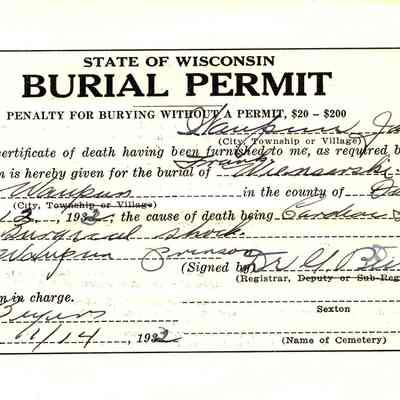 STATE OF WISCONSIN
BURIAL PERMIT
PENALTY FOR BURYING WITHOUT A PERMIT, $20 – $200
Waupun Ja
(City, Township or Village)
certificate of death having been furnished to me, as required b
Frank
n is hereby given for the burial of
Waupun in the county of
(City, Township or Village)
13, 1932, the cause of death being Cardiac
Surgical shock
Waupun Prison
(Signed by)
(Registrar, Deputy or Sub-Reg
n in charge.
Sexton
1/14, 1932
(Name of Cemetery)